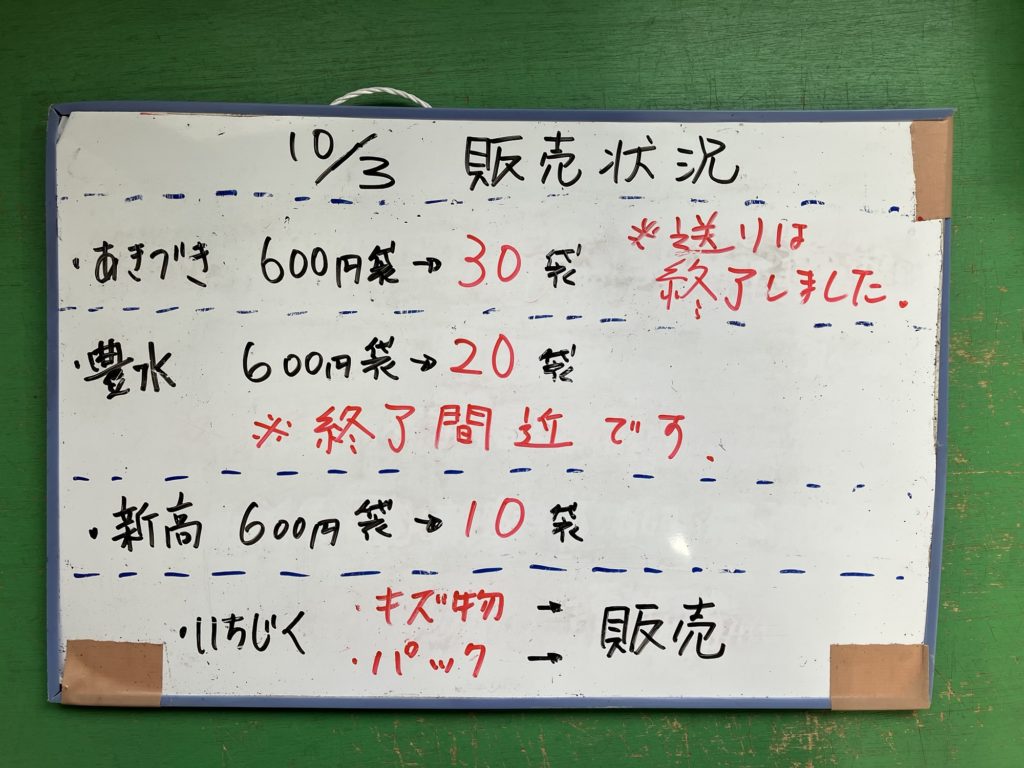 10/3 販売状況
・あきづき 600円袋→30袋 ※送りは
終了しました.
・豊水 600円袋→20袋
※終了間近です.
・新高 600円袋→10袋
・いちじく ・キズ物→ 販売
・パック→